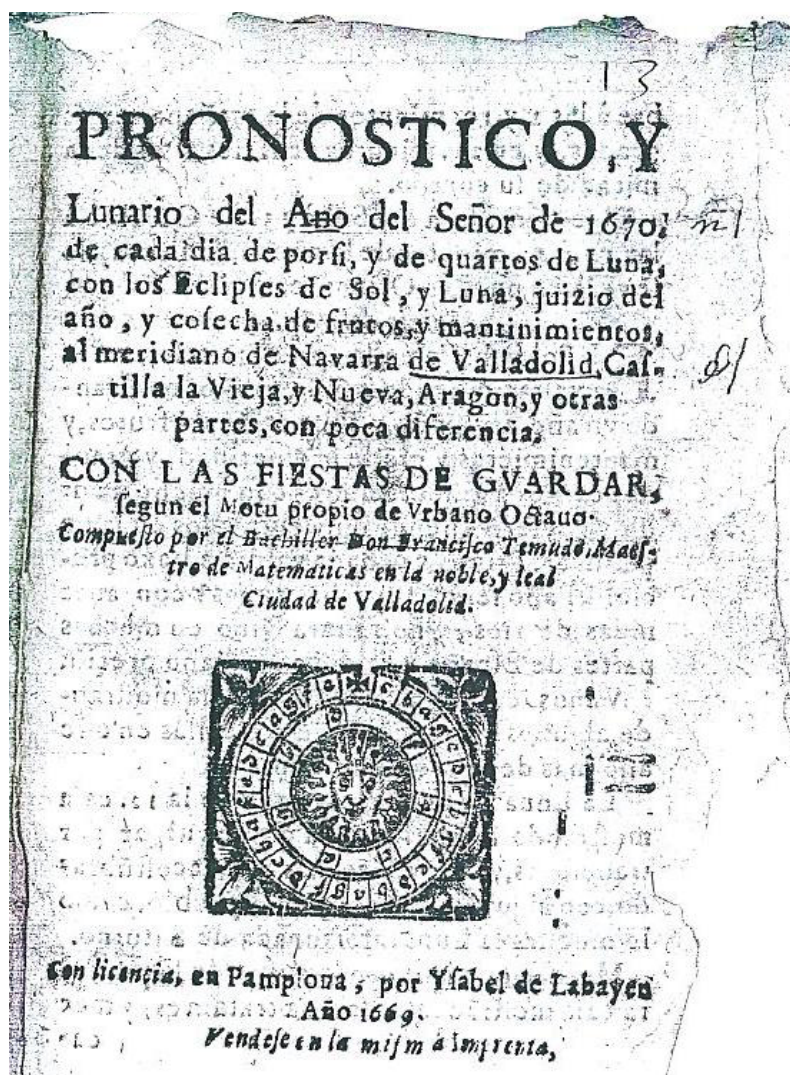 13
PRONOSTICO, Y
Lunario del Ano del Señor de 1670.
de cada dia de porsi, y de quartos de Luna,
con los Eclipſes de Sol, y Luna, juizio del
año, y coſecha de frutos, y mantinimientos,
al meridiano de Navarra de Valladolid, Caſ-
tilla la Vieja, y Nueva, Aragon, y otras
partes, con poca diferencia,
CON LAS FIESTAS DE GVARDAR,
ſegun el Motu propio de Vrbano Octauo.
Compueſto por el Bachiller Don Franciſco Temudo, Maeſ-
tro de Matematicas en la noble, y leal
Ciudad de Valladolid.
Con licencia, en Pamplona, por Yſabel de Labayen
Año 1669.
Vendeſe en la miſma Imprenta,